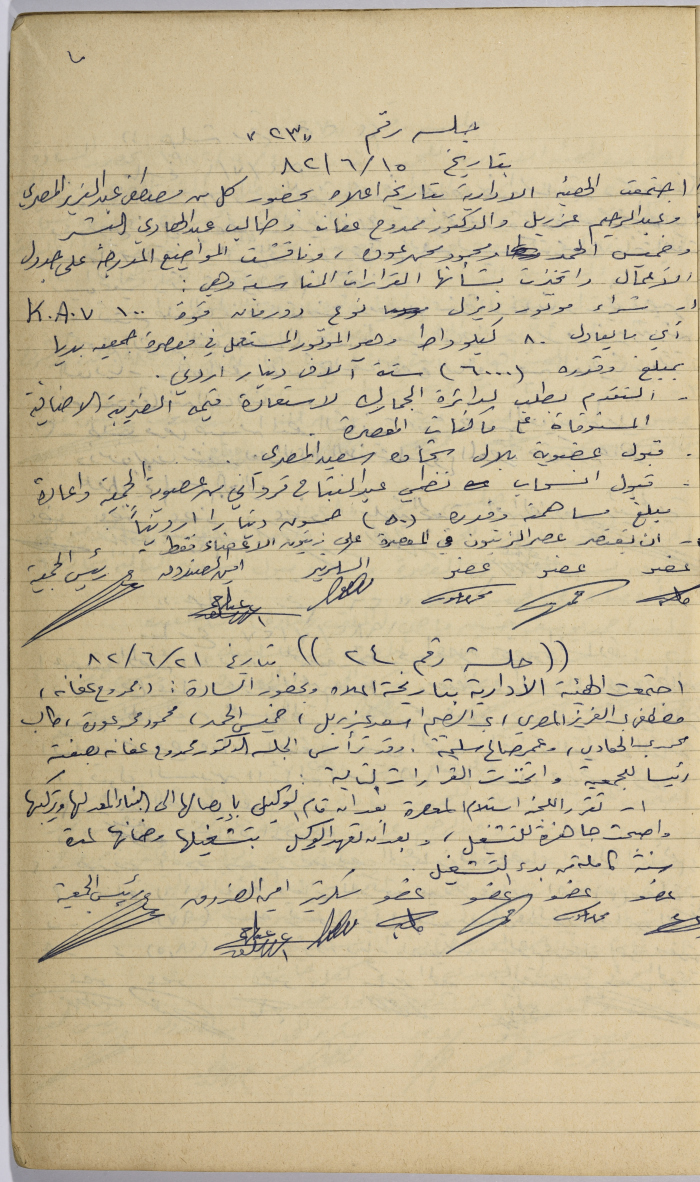 جلسه رقم "٢٣"
بتاريخ ٨٢/٦/١٥
اجتمعت الهيئه الادارية بتاريخه اعلاه بحضور كل من مصطفى عبد العزيز المصري
وعبد الرحيم عزريل والدكتور ممدوح عفانه وطالب عبد الهادي
وخميس الحمد ومحمود محمد عوده ، وناقشت المواضيع المدرجة على جدول
الاعمال واتخذت بشأنها القرارات المناسبة وهي :
شراء موتور ديزل نوع دورمان قوة ١٠٠ K.A.V
أي ما يعادل ٨٠ كيلو واط وهو الموتور المستعمل في معصرة جمعيه بديا
بمبلغ وقدره (٦٠٠٠) ستة آلاف دينار اردني .
- التقدم بطلب لدائرة الجمارك لاستعادة قيمه الضريبة الاضافية
المستوفاة عن ماكنات المعصرة .
. قبول عضوية بلال شحاده سعيد المصري .
قبول انسحاب نظمي عبد الفتاح من عضوية الجمعية واعادة
مبلغ مساهمته وقدره (٥٠) خمسون دينارا اردنياً .
- ان يقتصر عصر الزيتون في المعصرة على زيتون الاعضاء فقط
عضو عضو عضو السكرتير امين الصندوق رئيس الجمعية
((جلسة رقم ٢٤)) بتاريخ ٨٢/٦/٢١
اجتمعت الهيئة الأدارية بتاريخه اعلاه وبحضور السادة : د. ممدوح عفانه ،
مصطفى عبد العزيز المصري ، عبد الرحيم اسعد عزريل ، خميس الحمد ، محمود محمد عودة ، طالب
عبد الهادي ، وعمر صالح سليمة . وقد ترأس الجلسه الدكتور ممدوح عفانه بصفته
رئيسا للجمعية واتخذت القرارات التالية :
١- تقرر اللجنه استلام المعصرة بعد ان قام الوكيل بإيصالها الى البناء المعد لها وتركيبها
واصبحت جاهزة للتشغيل ، وبعد ان تعهد الوكيل بتشغيلها وضمانها لمدة
سنة كاملة من بدء التشغيل .
عضو عضو عضو عضو سكرتير امين الصندوق رئيس الجمعية